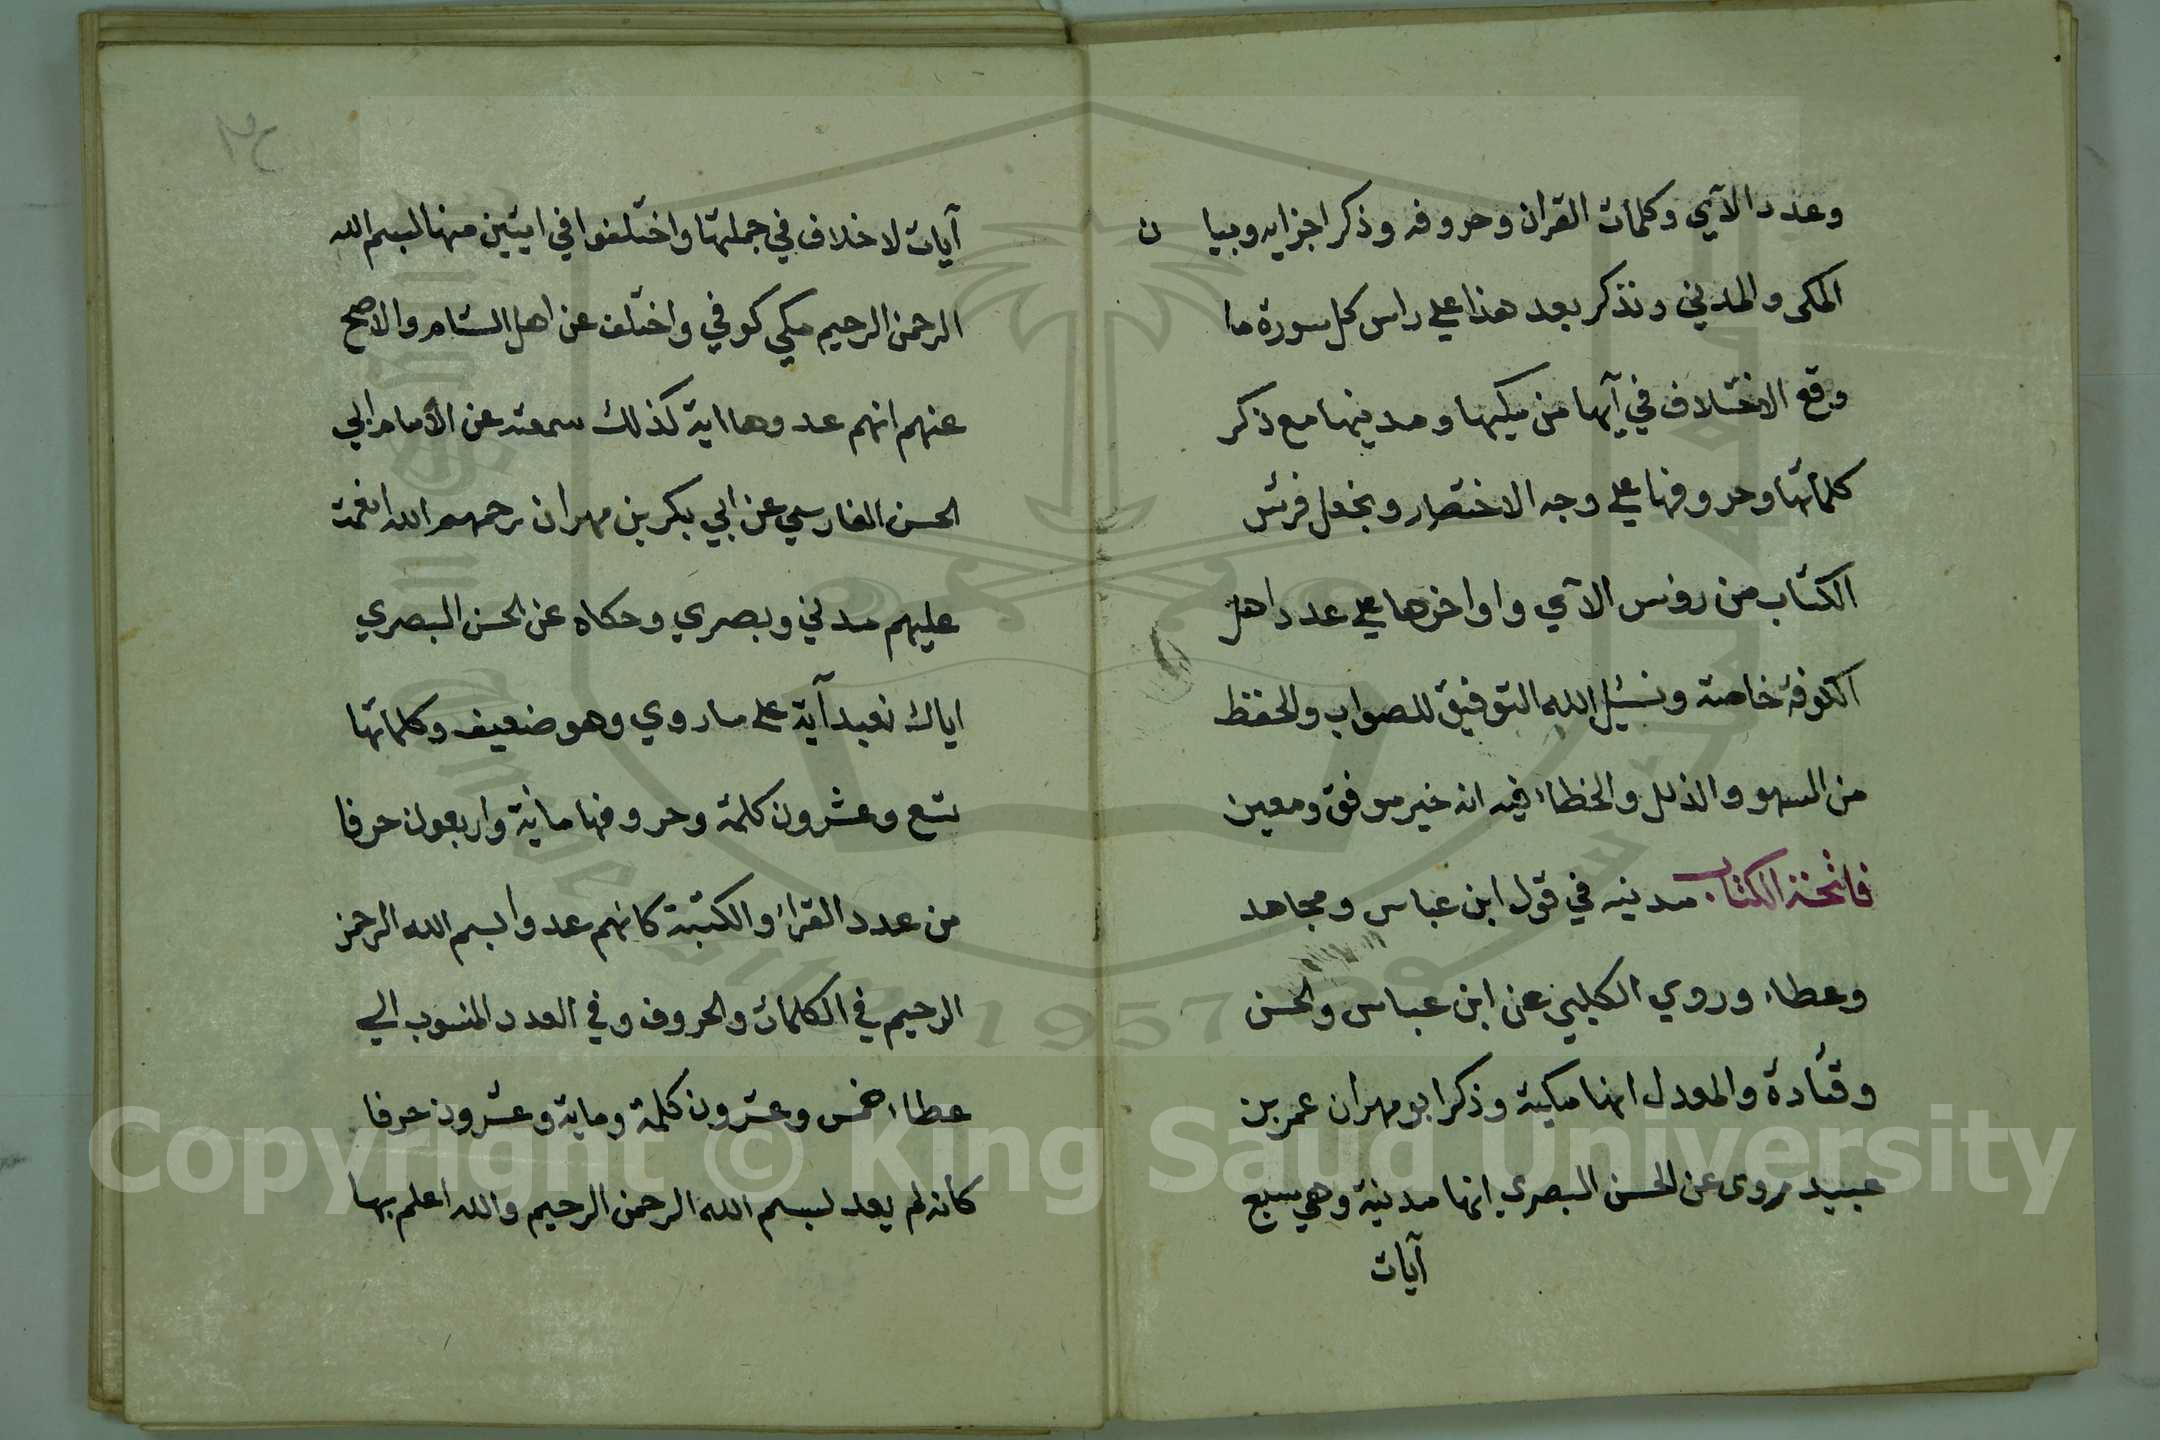 وعدد الآي وكلمات القران وحروفه وذكر اجزايه وبيا ن
المكى والمدني ونذكر بعد هذا على راس كل سورة ما
وقع الاختلاف في آيها من مكيها ومدنيها مع ذكر
كلماتها وحروفها على وجه الاختصار ونجعل فرش
الكتاب من روس الآي واواخرها على عدد اهل
الكوفة خاصة ونسئل الله التوفيق للصواب والحفظ
من السهو والذلل والخطاء فيه انه خير موفق ومعين
فاتحة الكتاب مدنيه في قول ابن عباس ومجاهد
وعطاء وروي الكلبي عن ابن عباس والحسن
وقتادة والمعدل انها مكية وذكر ابو مهران عمر بن
عبيد مروى عن الحسن البصري انها مدنية وهي سبع
آيات
آيات لا خلاف في جملتها واختلفوا في ايتين منها لبسم الله
الرحمن الرحيم مكي كوفي واختلف عن اهل الشام والاصح
عنهم انهم عدوها اية كذلك سمعته عن الامام ابي
الحسن الفارسي عن ابي بكر بن مهران رحمهم الله انعمت
عليهم مدني وبصري وحكاه عن الحسن البصري
اياك نعبد آية على ماروي وهو ضعيف وكلماتها
تسع وعشرون كلمة وحروفها ماية واربعون حرفا
من عدد القراء والكتبة كانهم عدوا بسم الله الرحمن
الرحيم في الكلمات والحروف وفي العدد المنسوب الي
عطاء خمس وعشرون كلمة وماية وعشرون حرفا
كانه لم يعد لبسم الله الرحمن الرحيم والله اعلم بها
Copyright © King Saud University
1957